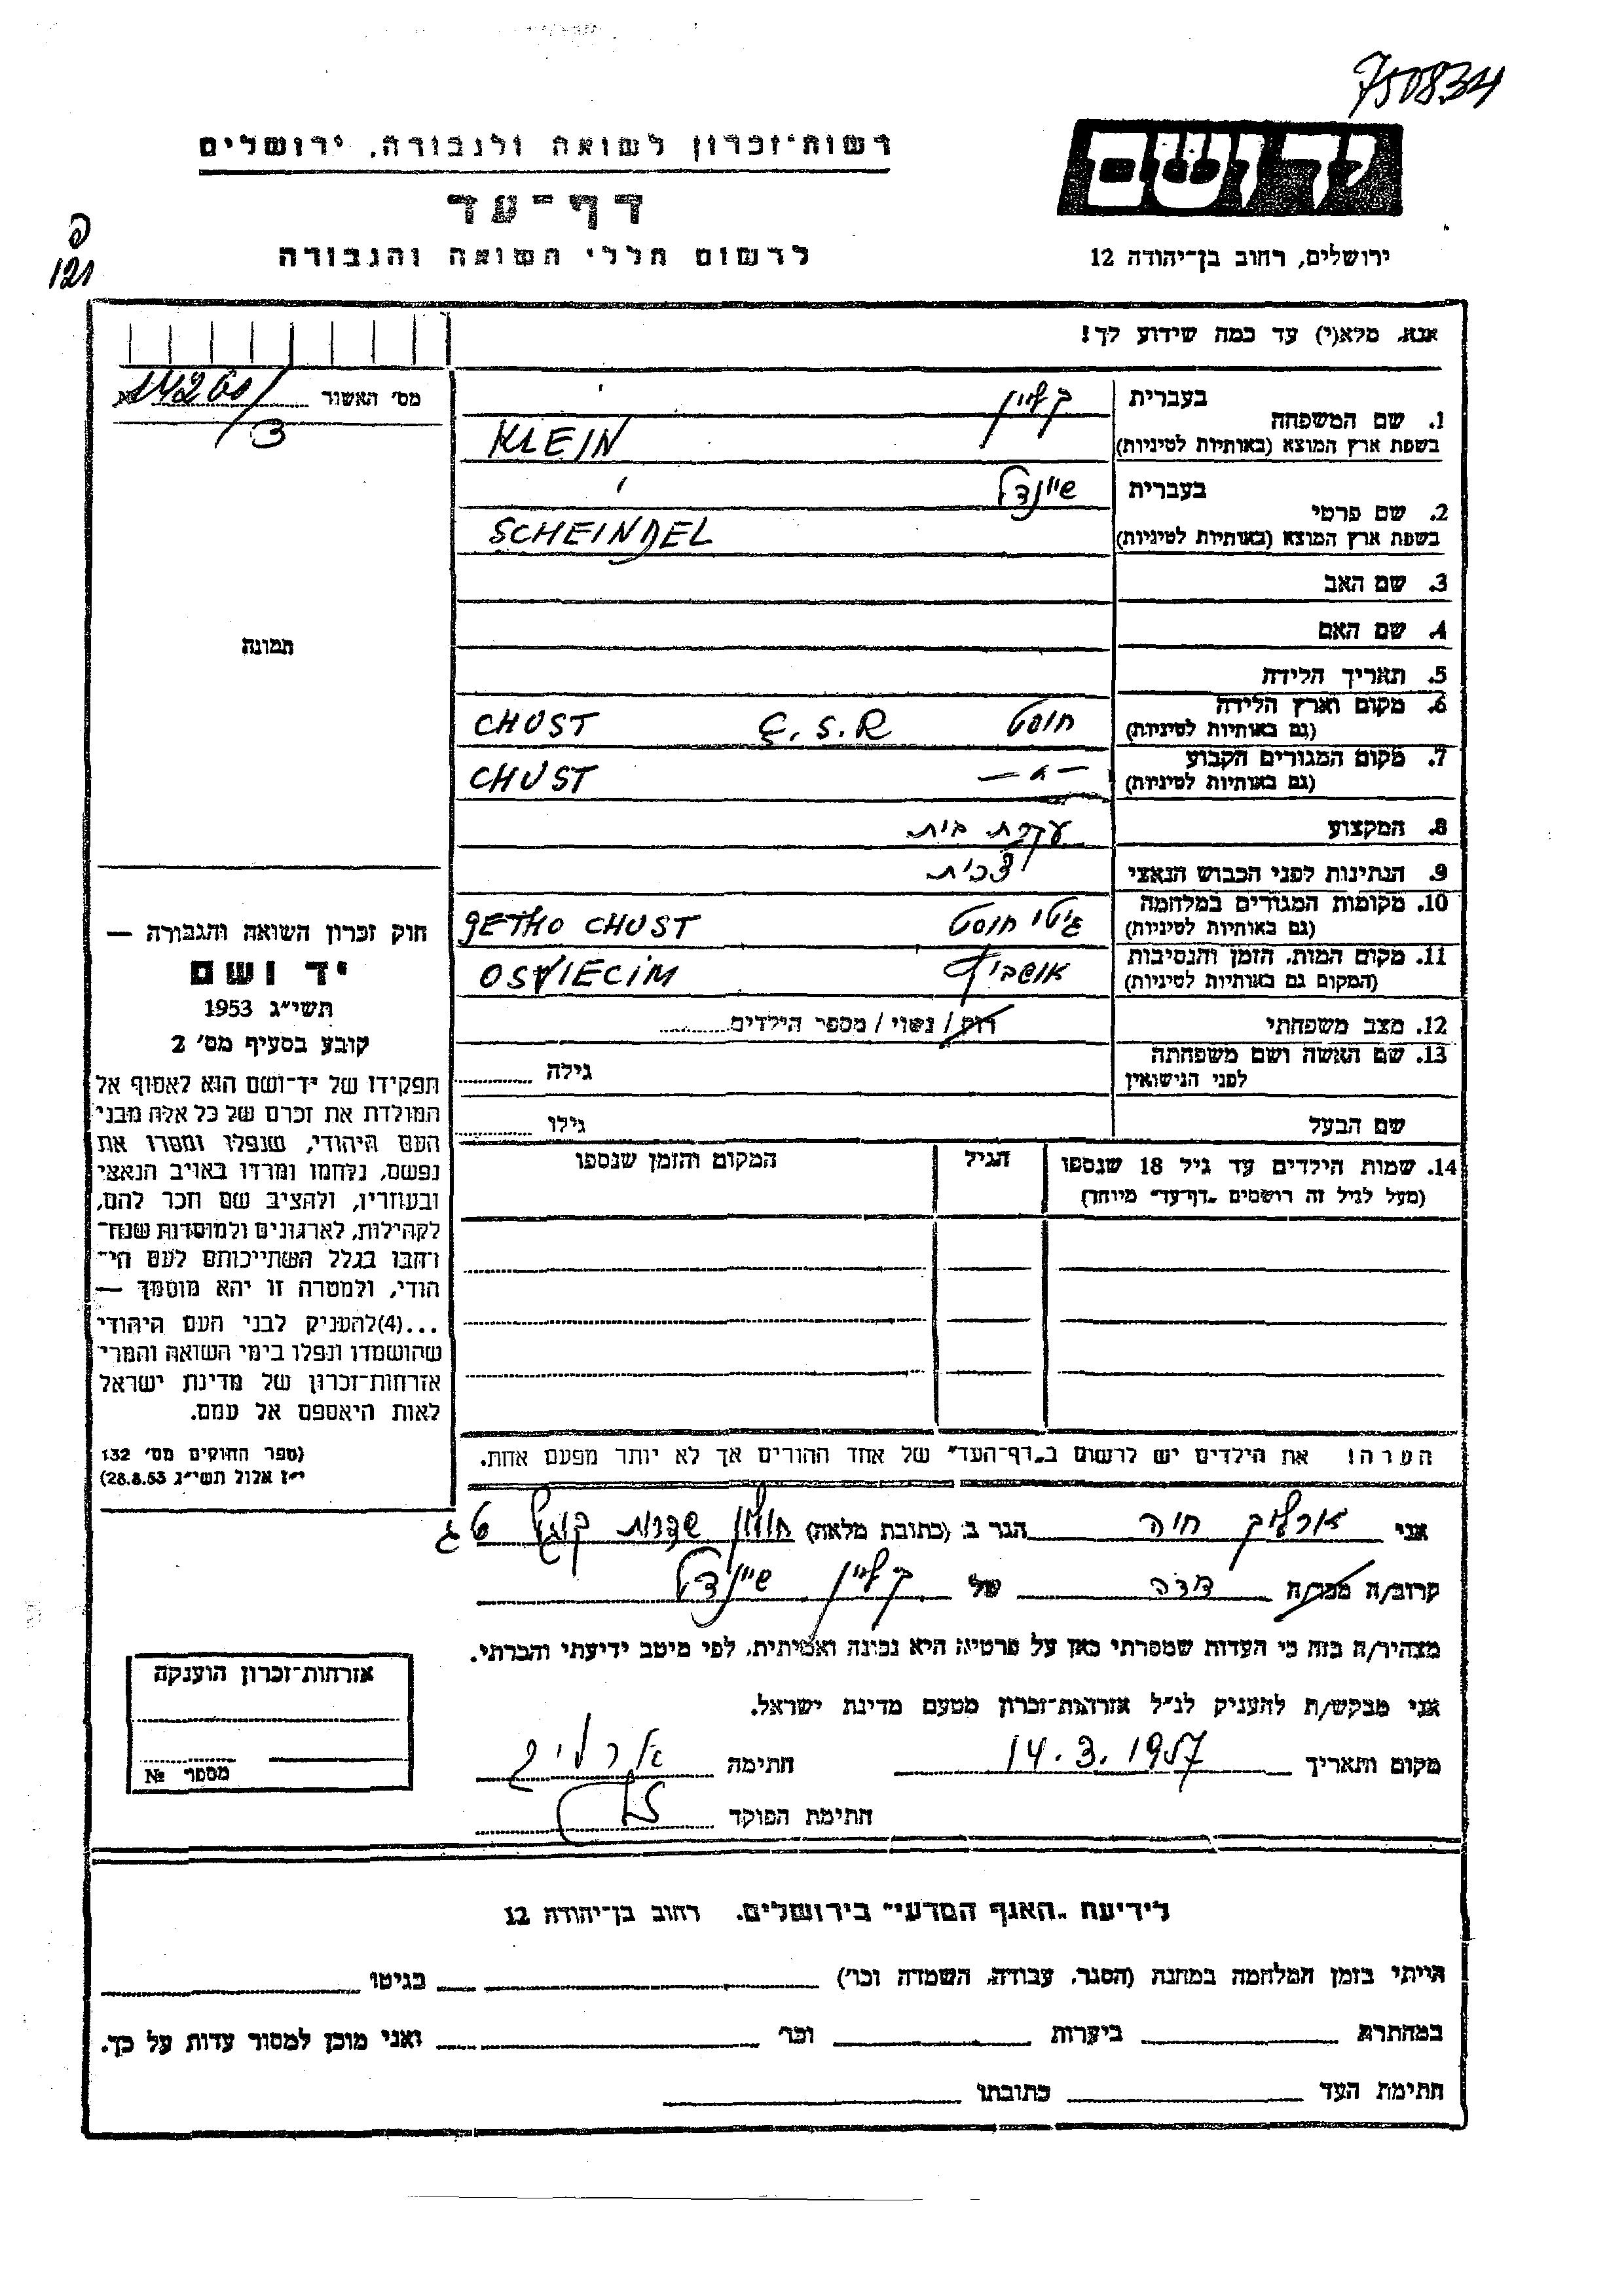 750834
רשות־זכרון לשואה ולגבורה, ירושלים
יד ושם
דף־עד
לרשום חללי השואה והגבורה
ירושלים, רחוב בן־יהודה 12
121
אנא, מלא(י) עד כמה שידוע לך!
מס׳ האשור 174260/3
1. שם המשפחה בעברית קליין
בשפת ארץ המוצא (באותיות לטיניות) KLEIN
2. שם פרטי בעברית שיינדל
בשפת ארץ המוצא (באותיות לטיניות) SCHEINDEL
3. שם האב
4. שם האם
תמונה
5. תאריך הלידה
6. מקום וארץ הלידה חוסט Č.S.R CHUST
(גם באותיות לטיניות)
7. מקום המגורים הקבוע — " — CHUST
(גם באותיות לטיניות)
8. המקצוע עקרת בית
9. הנתינות לפני הכבוש הנאצי צ׳כית
10. מקומות המגורים במלחמה גיטו חוסט GETHO CHUST
(גם באותיות לטיניות)
11. מקום המות, הזמן והנסיבות אושביץ OSVIECIM
(המקום גם באותיות לטיניות)
12. מצב משפחתי רוק / נשוי / מספר הילדים
13. שם האשה ושם משפחתה גילה
לפני הנישואין
שם הבעל גילו
14. שמות הילדים עד גיל 18 שנספו הגיל המקום והזמן שנספו
(מעל לגיל זה רושמים „דף־עד״ מיוחד)
הערה! את הילדים יש לרשום ב„דף־העד״ של אחד ההורים אך לא יותר מפעם אחת.
חוק זכרון השואה והגבורה —
יד ושם
תשי״ג 1953
קובע בסעיף מס׳ 2
תפקידו של יד־ושם הוא לאסוף אל
המולדת את זכרם של כל אלה מבני
העם היהודי, שנפלו ומסרו את
נפשם, נלחמו ומרדו באויב הנאצי
ובעוזריו, ולהציב שם וזכר להם,
לקהילות, לארגונים ולמוסדות שנח־
רבו בגלל השתייכותם לעם הי־
הודי, ולמטרה זו יהא מוסמך —
...(4)להעניק לבני העם היהודי
שהושמדו ונפלו בימי השואה והמרי
אזרחות־זכרון של מדינת ישראל
לאות היאספם אל עמם.
(ספר החוקים מס׳ 132
י״ז אלול תשי״ג 28.8.53)
אני ארליך חיה הגר ב: (כתובת מלאה) חולון שדרות קוגל
קרוב/ה מכר/ה דודה של קליין שיינדל
מצהיר/ה בזה כי העדות שמסרתי כאן על פרטיה היא נכונה ואמיתית, לפי מיטב ידיעתי והכרתי.
אני מבקש/ת להעניק לנ״ל אזרחות־זכרון מטעם מדינת ישראל.
מקום ותאריך 14.3.1957 חתימה ארליך
חתימת הפוקד
אזרחות־זכרון הוענקה
מספר №
לידיעת „האגף המדעי״ בירושלים, רחוב בן־יהודה 12
הייתי בזמן המלחמה במחנה (הסגר, עבודה, השמדה וכו׳) בגיטו
במחתרת ביערות וכו׳ ואני מוכן למסור עדות על כך.
חתימת העד כתובתו